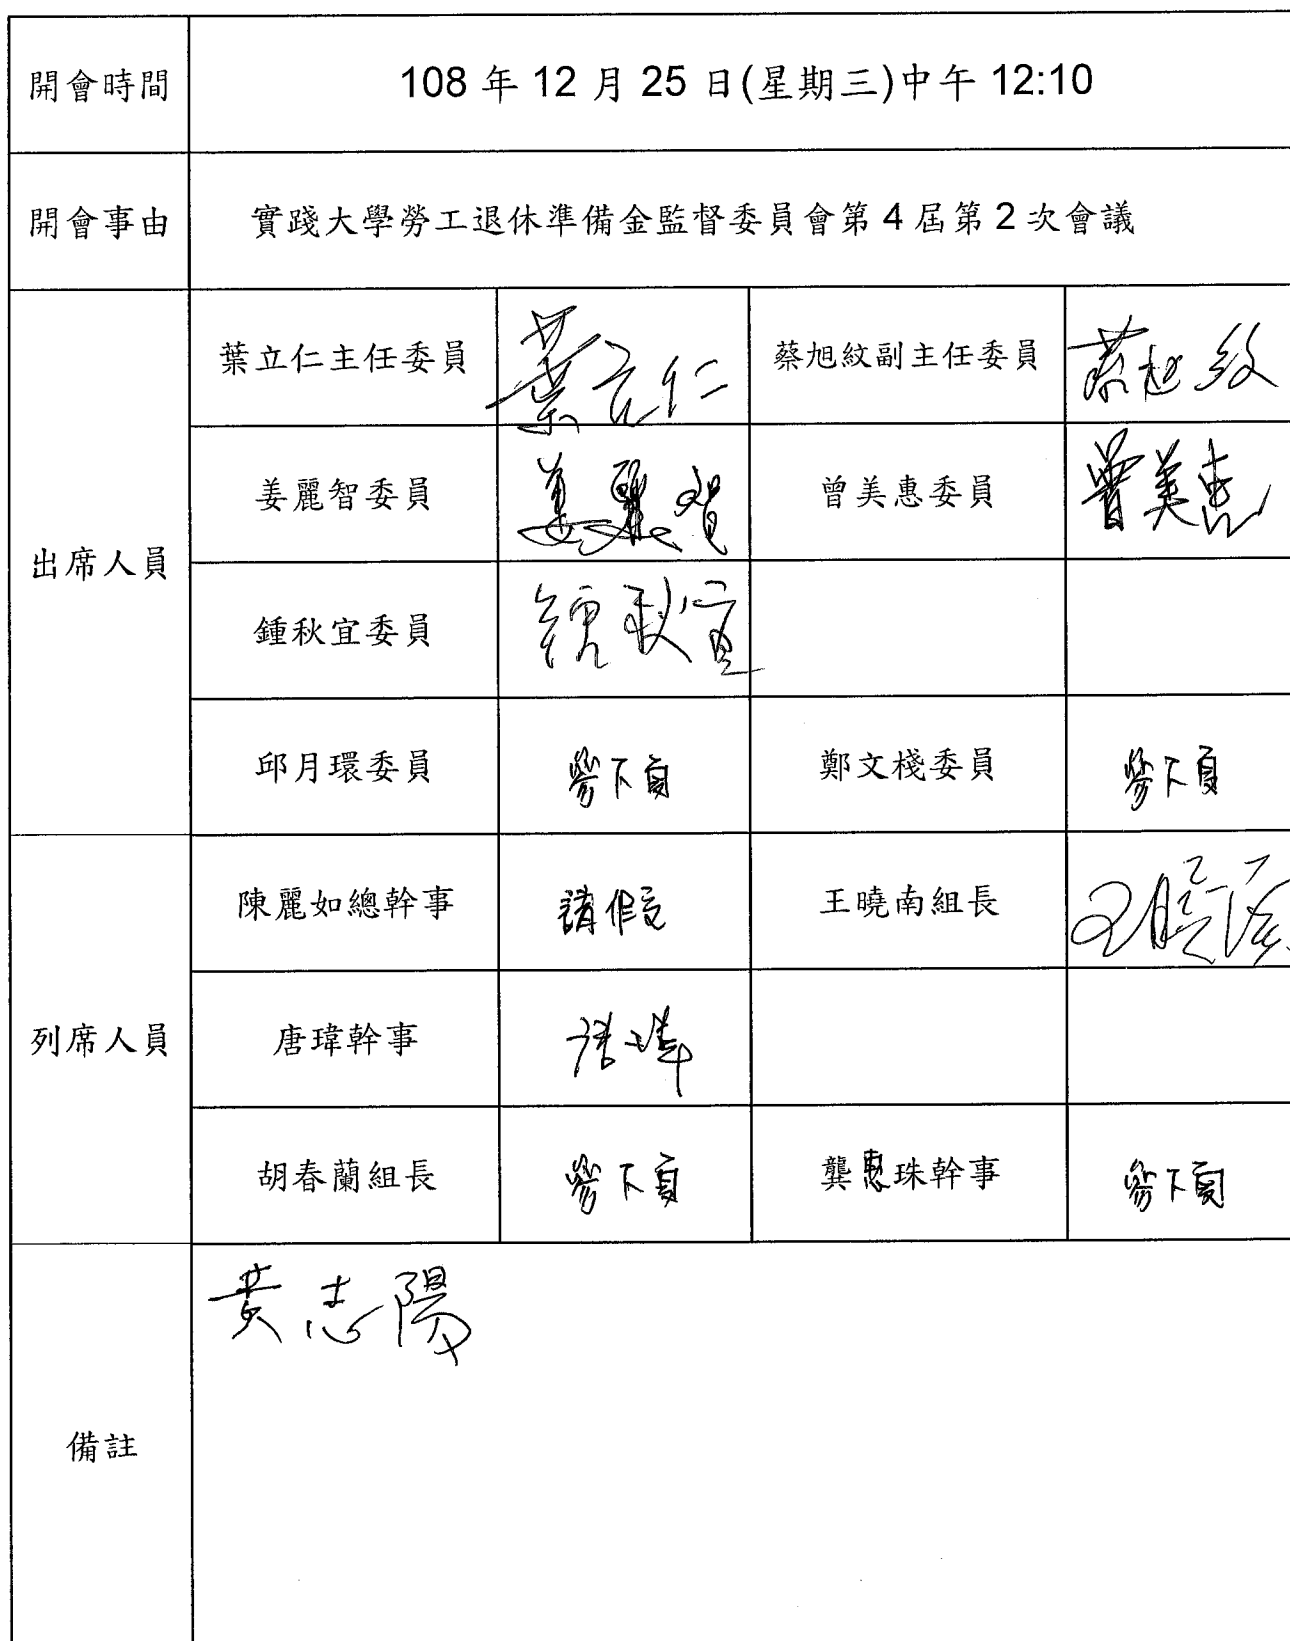 開會時間 108 年 12 月 25 日(星期三)中午 12:10
開會事由 實踐大學勞工退休準備金監督委員會第 4 屆第 2 次會議
出席人員
葉立仁主任委員 葉立仁 蔡旭紋副主任委員 蔡旭紋
姜麗智委員 姜麗智 曾美惠委員 曾美惠
鍾秋宜委員 鍾秋宜
邱月環委員 參下頁 鄭文棧委員 參下頁
列席人員
陳麗如總幹事 請假 王曉南組長 王曉南
唐瑋幹事 唐瑋
胡春蘭組長 參下頁 龔惠珠幹事 參下頁
備註
黃志陽